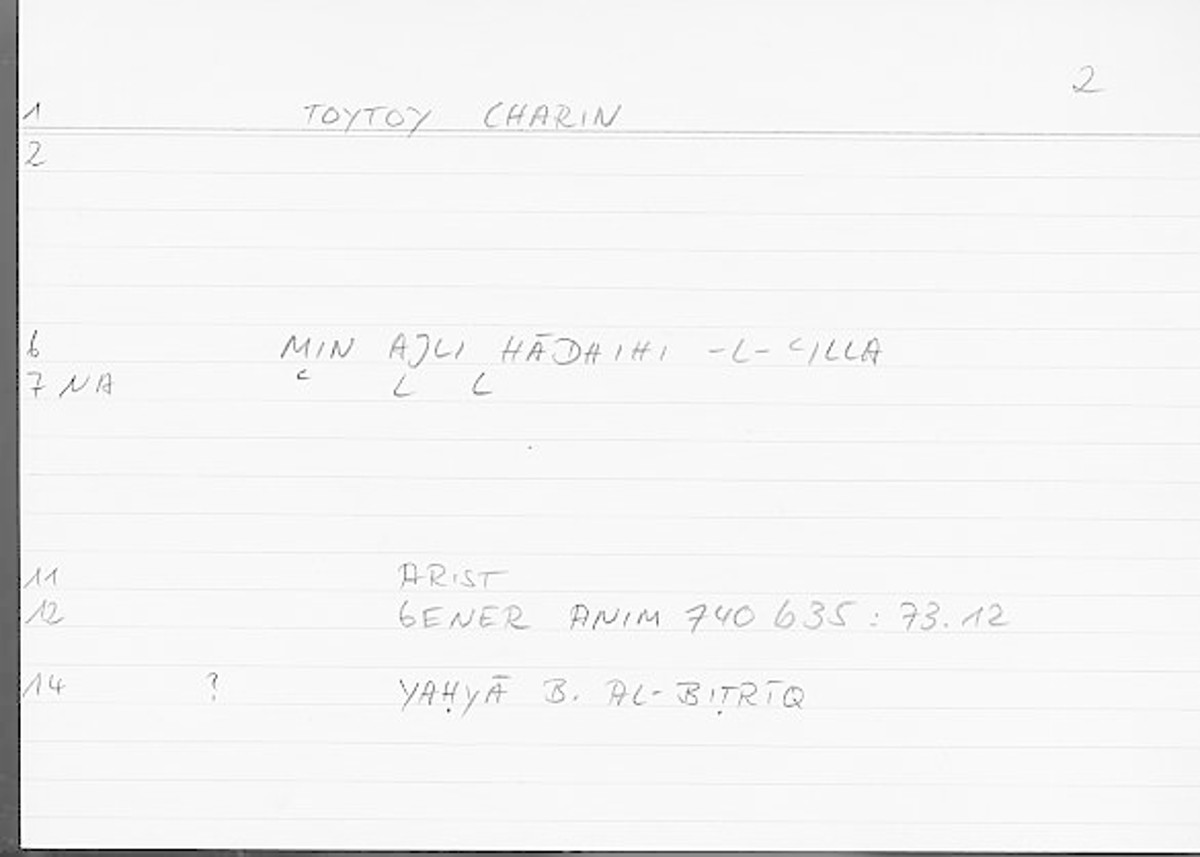 2
1 TOYTOY CHARIN
2
6 MIN AJLI HĀDAIHI -L- ʿILLA
7 NA c L L
11 ARIST
12 GENER ANIM 740 635 : 73.12
14 ? YAḤYĀ B. AL-BIṬRĪQ